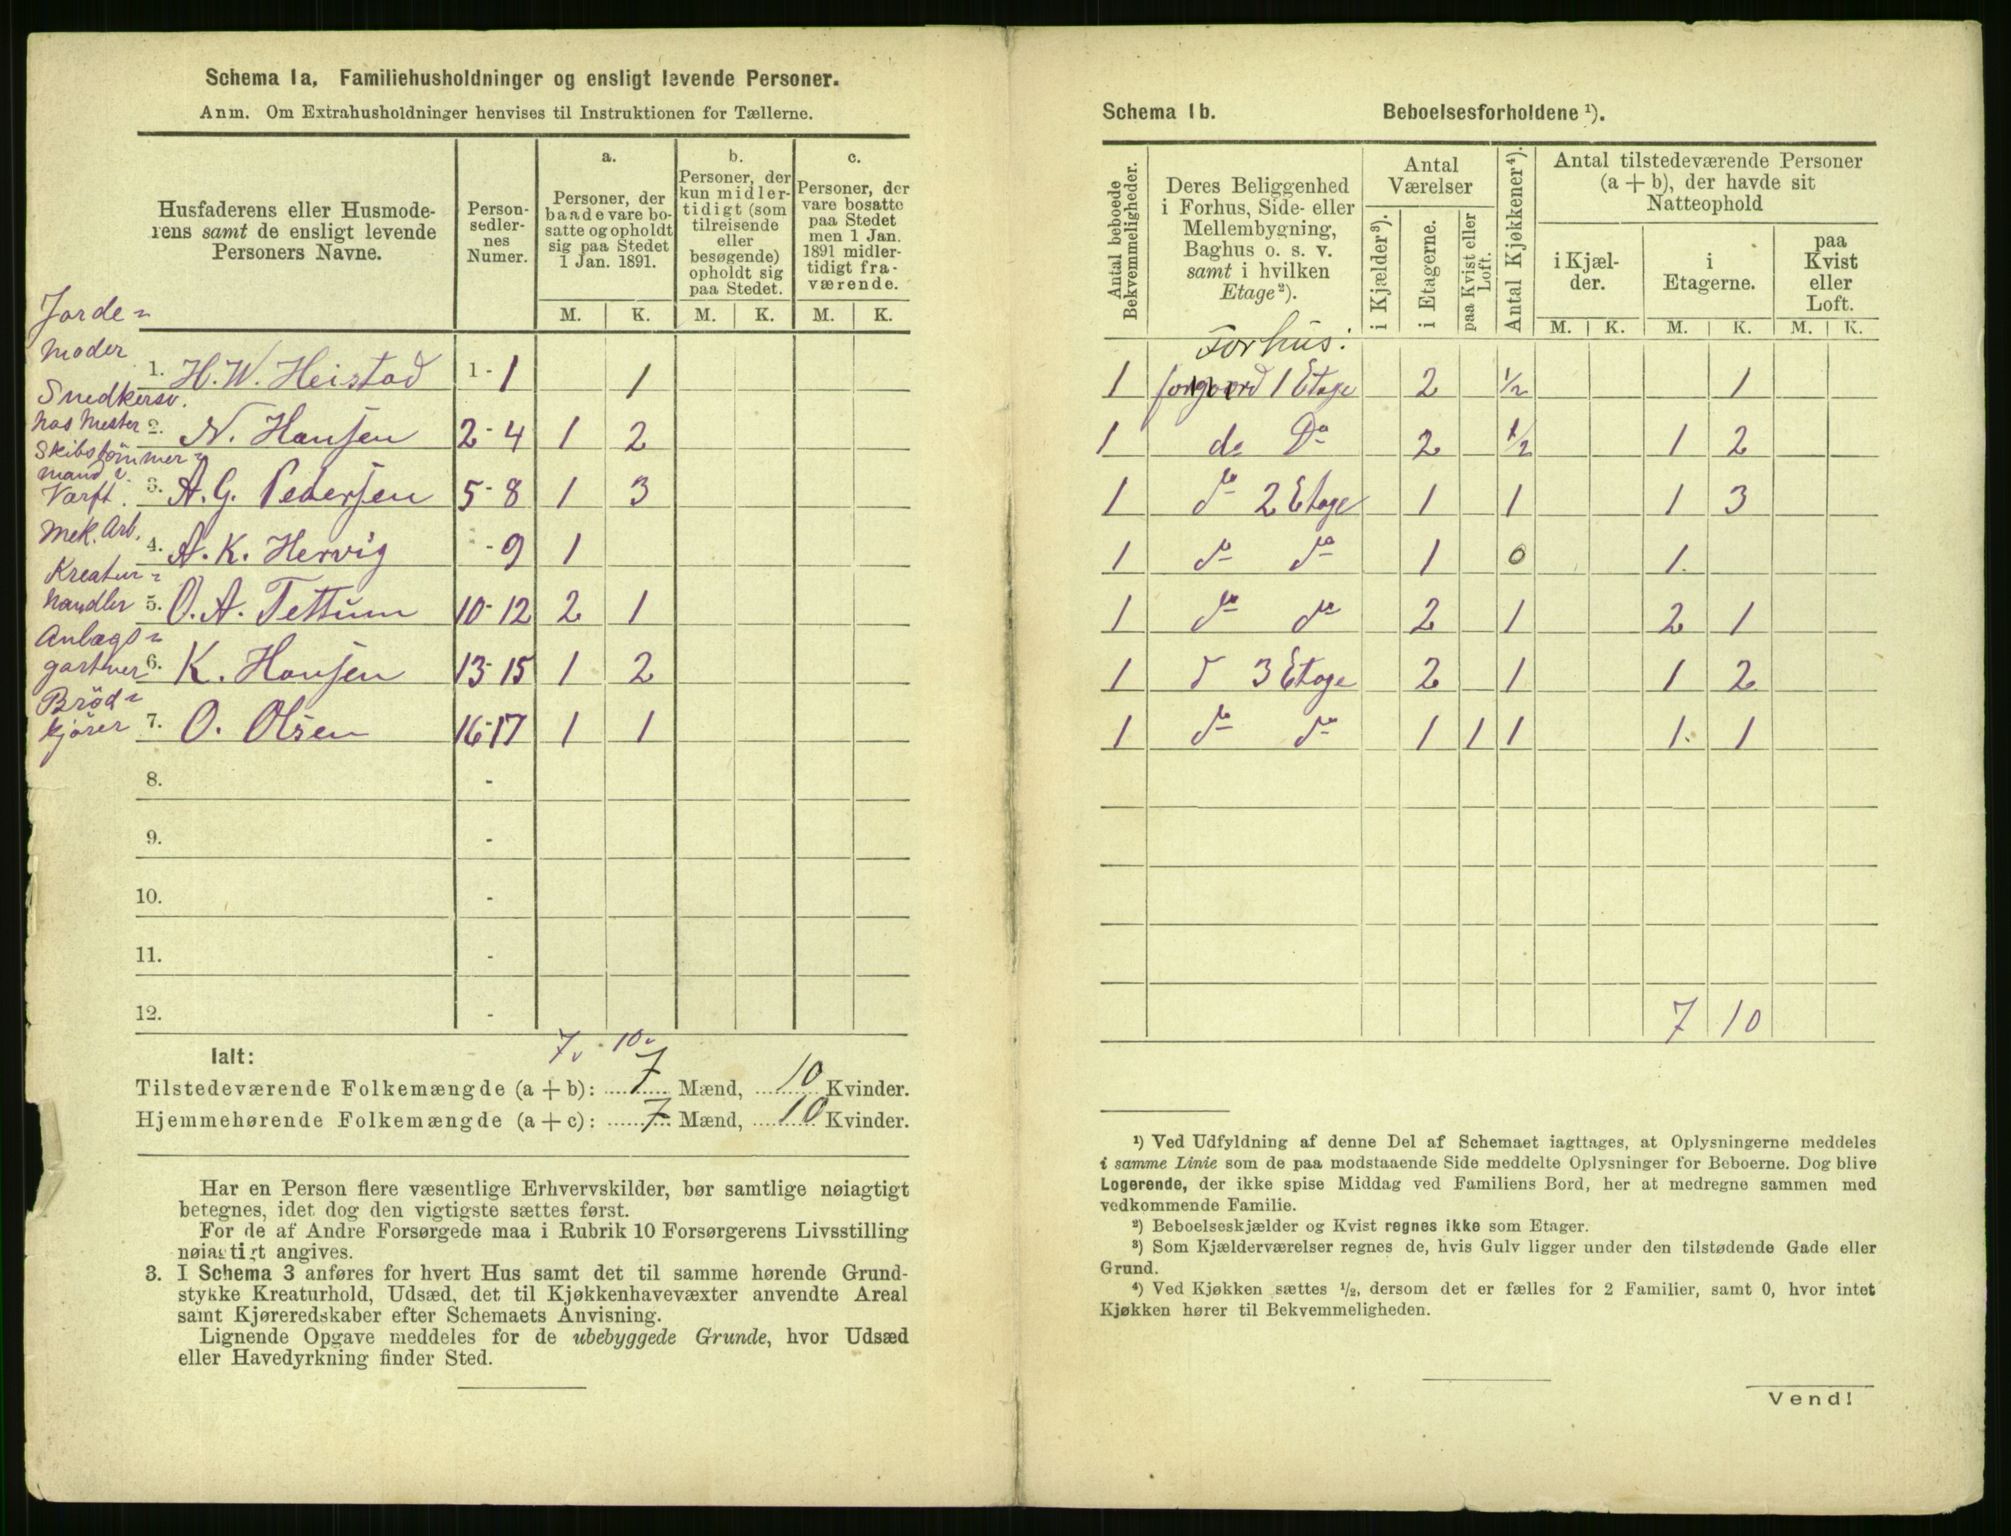 Schema 1a, Familiehusholdninger og ensligt levende Personer.
Anm. Om Extrahusholdninger henvises til Instruktionen for Tællerne.
Husfaderens eller Husmode-
rens samt de ensligt levende
Personers Navne.
Person-
sedler-
nes
Numer.
a.
Personer, der
baade vare bo-
satte og opholdt
sig paa Stedet
1 Jan. 1891.
b.
Personer, der
kun midler-
tidigt (som
tilreisende
eller
besøgende)
opholdt sig
paa Stedet.
c.
Personer, der
vare bosatte
paa Stedet
men 1 Jan.
1891 midler-
tidigt fra-
værende.
M. K. M. K. M. K.
Jorde=
moder
1. H. W. Heistad 1-1 1
Snedkersv.
hos Mester
2. N. Hansen 2-4 1 2
Skibstömmer=
mand v.
Værft.
3. A. G. Pedersen 5-8 1 3
Mek. Arb.
4. A. K. Hervig -9 1
Kreatur=
handler
5. O. A. Tettum 10-12 2 1
Anlægs=
gartner
6. K. Hansen 13-15 1 2
Bröd=
kjörer
7. O. Olsen 16-17 1 1
8. -
9. -
10. -
11. -
12. -
7v 10v
Ialt:
Tilstedeværende Folkemængde (a + b): 7 Mænd, 10 Kvinder.
Hjemmehørende Folkemængde (a + c): 7 Mænd, 10 Kvinder.
Har en Person flere væsentlige Erhvervskilder, bør samtlige nøiagtigt
betegnes, idet dog den vigtigste sættes først.
For de af Andre Forsørgede maa i Rubrik 10 Forsørgerens Livsstilling
nøiagtigt angives.
3. I Schema 3 anføres for hvert Hus samt det til samme hørende Grund-
stykke Kreaturhold, Udsæd, det til Kjøkkenhavevæxter anvendte Areal
samt Kjøreredskaber efter Schemaets Anvisning.
Lignende Opgave meddeles for de ubebyggede Grunde, hvor Udsæd
eller Havedyrkning finder Sted.
Schema 1b. Beboelsesforholdene ¹).
Antal beboede
Bekvemmeligheder.
Deres Beliggenhed
i Forhus, Side- eller
Mellembygning,
Baghus o. s. v.
samt i hvilken
Etage ²).
Antal
Værelser
i Kjælder ³).
i Etagerne.
paa Kvist eller
Loft.
Antal Kjøkkener ⁴).
Antal tilstedeværende Personer
(a + b), der havde sit
Natteophold
i Kjæl-
der.
i
Etagerne.
paa
Kvist
eller
Loft.
M. K. M. K. M. K.
Forhus.
1 forgaard 1 Etage 2 ½ 1
1 do Do 2 ½ 1 2
1 do 2 Etage 1 1 1 3
1 do do 1 0 1
1 do do 2 1 2 1
1 d 3 Etage 2 1 1 2
1 do do 1 1 1 1 1
7 10
¹) Ved Udfyldning af denne Del af Schemaet iagttages, at Oplysningerne meddeles
i samme Linie som de paa modstaaende Side meddelte Oplysninger for Beboerne. Dog blive
Logerende, der ikke spise Middag ved Familiens Bord, her at medregne sammen med
vedkommende Familie.
²) Beboelseskjælder og Kvist regnes ikke som Etager.
³) Som Kjælderværelser regnes de, hvis Gulv ligger under den tilstødende Gade eller
Grund.
⁴) Ved Kjøkken sættes ½, dersom det er fælles for 2 Familier, samt 0, hvor intet
Kjøkken hører til Bekvemmeligheden.
Vend!